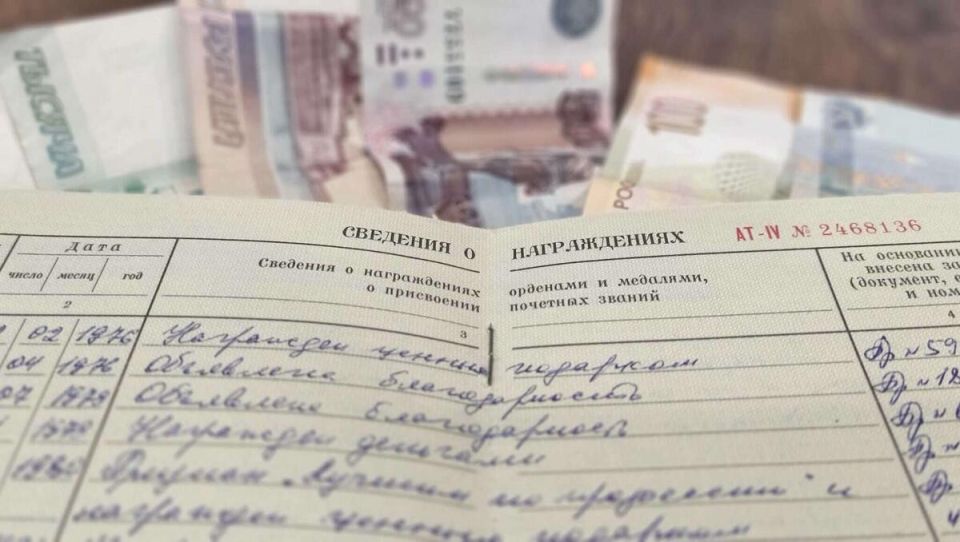 ТЫСЯЧА
100
РОС
СВЕДЕНИЯ О НАГРАЖДЕНИЯХ АТ-IV № 2468136
Дата
число месяц год
Сведения о награждениях орденами и медалями,
о присвоении почетных званий
На основании
внесена за
(документ, е
и ном
2 3 4
02 1976 Награжден ценным подарком Пр №59
04 1976 Объявлена благодарность Пр №12
07 1979 Объявлена благодарность Пр №
1979 Награжден деньгами Пр №
Признан "Лучшим по профессии" и Пр
награжден ценным подарком